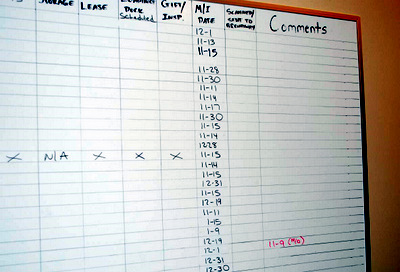 STORAGE LEASE Dock Scheduled GIFT/ INSP. M/I DATE SCANNED/ SENT TO Comments
12-1
11-13
11-15
11-28
11-30
11-11
11-14
11-17
11-30
11-15
11-14
1228
X N/A X X X 11-15
11-14
11-15
12-31
11-15
12-19
11-11
1-15
1-9
12-19 11-9 (M/O)
12-1
12-31
12-30